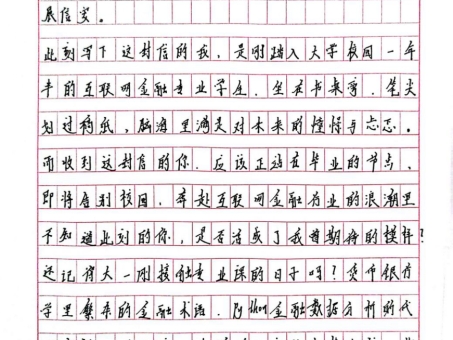 展信安。
此刻写下这封信的我，是刚踏入大学校园一年
半的互联网金融专业学生，坐在书桌旁，笔尖
划过稿纸，脑海里满是对未来的憧憬与忐忑。
而收到这封信的你，应该正站在毕业的节点，
即将告别校园，奔赴互联网金融行业的浪潮里
不知道此刻的你，是否活成了我曾期待的模样？
还记得大一刚接触专业课的日子吗？货币银行
学里繁杂的金融术语，Python金融数据分析的代